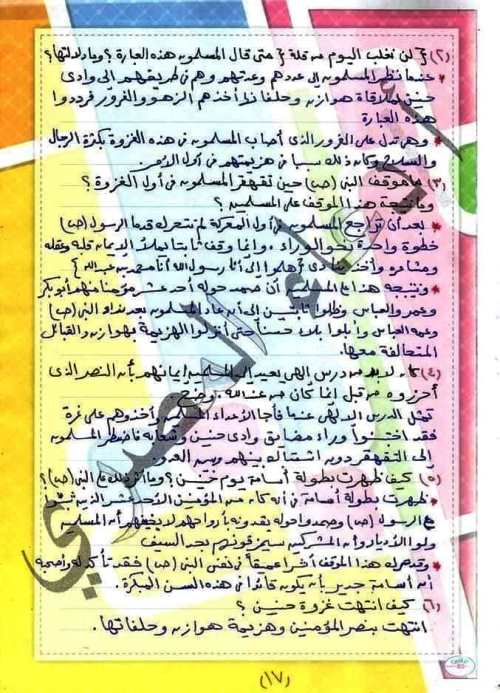 (٢) { لن نغلب اليوم من قلة } متى قال المسلمون هذه العبارة ؟ وما دلالتها ؟
* عندما نظر المسلمون إلى عددهم وعدتهم وهم فى طريقهم إلى وادى
حنين لملاقاة هوازن وحلفائها أخذهم الزهو والغرور فرددوا
هذه العبارة
* وهى تدل على الغرور الذى أصاب المسلمون فى هذه الغزوة بكثرة الرجال
والسلاح وكان ذلك سببا فى هزيمتهم فى أول الأمر
(٣) ما موقف النبى (ص) حين تقهقر المسلمون فى أول الغزوة ؟
وما نتيجة هذا الموقف على المسلمين ؟
* بعد أن تراجع المسلمون فى أول المعركة لم تتحرك قدما الرسول (ص)
خطوة واحدة نحو الوراء . وإنما وقف ثابتا يملأ الإيمان قلبه وعقله
ومشاعره وأخذ ينادى { هلموا إلى أنا رسول الله أنا محمد بن عبد الله }
* ونتيجة هذا على المسلمين أن صمد حوله أحد عشر مؤمنا منهم أبو بكر
وعمر والعباس وظلوا ثابتين إلى أن عاد المسلمون بعد نداء النبى (ص)
وعمه العباس وأبلوا بلاء حسنا حتى أنزلوا الهزيمة بهوازن والقبائل
المتحالفة معها.
(٤) كان لابد من درس إلهى يعيد إلى المسلمين إيمانهم بأن النصر الذى
أحرزوه من قبل إنما كان من عند الله . وضح
تمثل الدرس الإلهى عندما فاجأ الأعداء المسلمين وأخذوهم على غرة
فقد اختبئوا وراء مضايق وادى حنين وشعابه فاضطر المسلمون
إلى التقهقر دون اشتباك بينهم وبين العدو.
(٥) كيف ظهرت بطولة أسامة يوم حنين ؟ وما أثر ذلك على النبى (ص)؟
* ظهرت بطولة أسامة فى أنه كان من المؤمنين الأحد عشر الذين ثبتوا
مع الرسول (ص) وصمدوا حوله يفدونه بأرواحهم لا يخيفهم أن المسلمين
ولوا الأدبار وأن المشركين سيمزقونهم بحد السيف
* وقد ترك هذا الموقف أثرا عميقا فى نفس النبى (ص) فقد تأكد له
أن أسامة جدير بأن يكون قائدا فى هذه السن المبكرة .
(٦) كيف انتهت غزوة حنين ؟
انتهت بنصر المؤمنين وهزيمة هوازن وحلفائها .
(١٧)